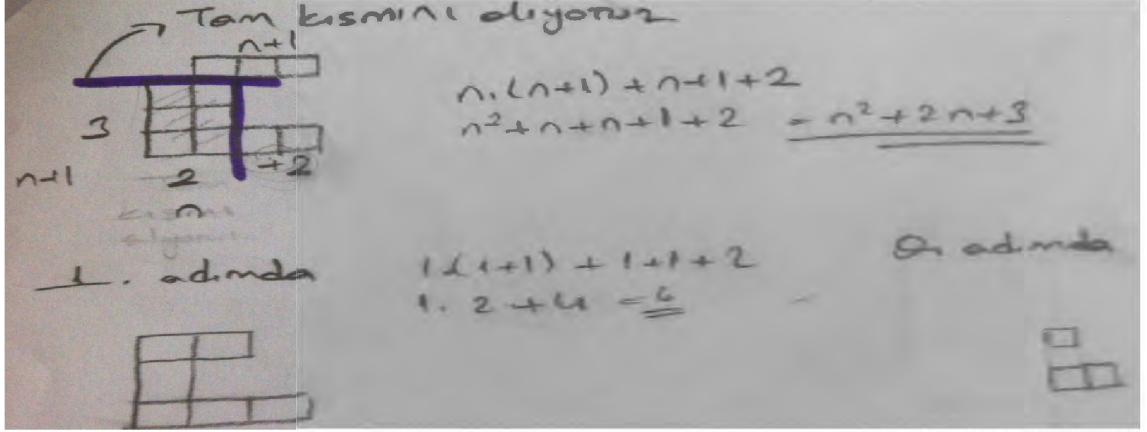 Tam kısmını alıyoruz
n+1
3
n+1
2
+2
n
n.(n+1) + n+1+2
n²+n+n+1+2 = n²+2n+3
1. adımda
1.(1+1) + 1+1+2
1. 2 + 4 = 6
0. adımda